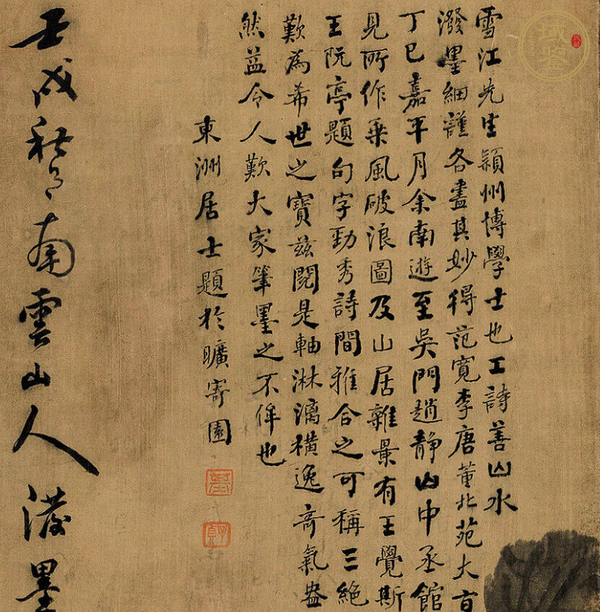 雪江先生潁州博學士也工詩善山水
潑墨細謹各盡其妙得范寬李唐董北苑大旨
丁巳嘉平月余南遊至吳門趙靜山中丞館
見所作乗風破浪圖及山居雜景有王覺斯
王阮亭題句字勁秀詩間雅合之可稱三絶
歎為希世之寶兹閱是軸淋漓橫逸奇氣盎
然益令人歎大家筆墨之不侔也
東洲居士題於曠寄園
壬戌秋日南雲山人潑墨